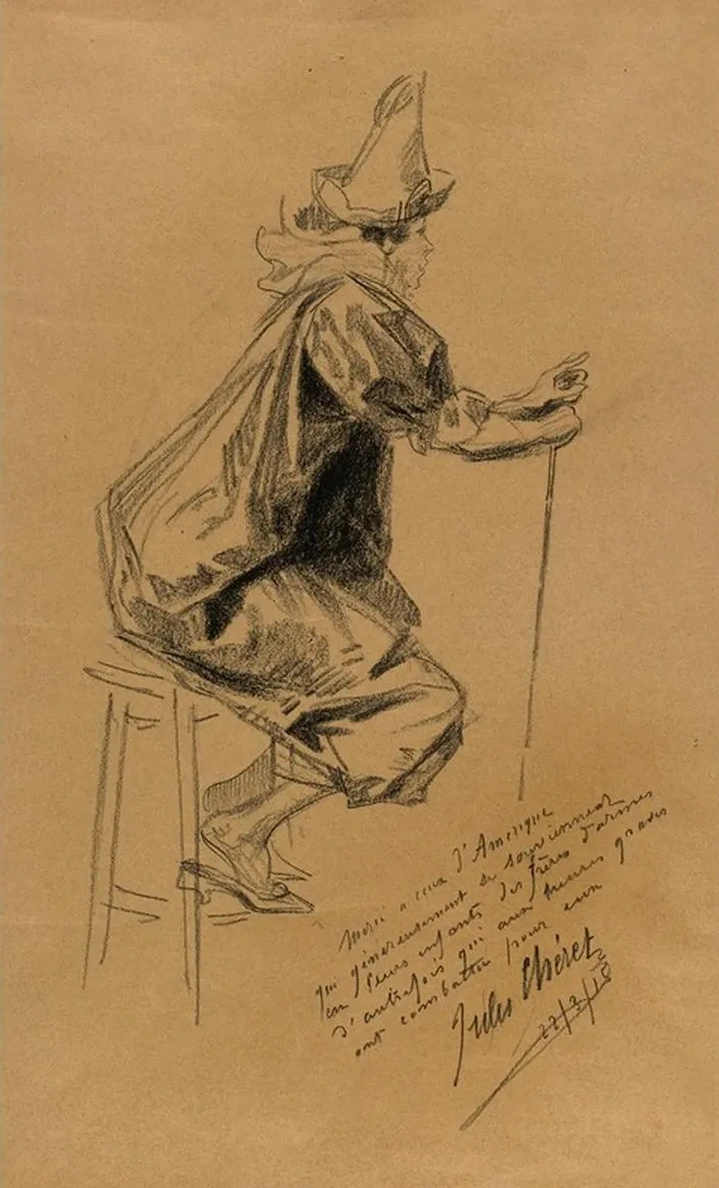 Merci a ceux d'Amerique
qui généreusement se souviennent
en leurs enfants des frères d'armes
d'autrefois qui aux heures graves
ont combattu pour eux
Jules Chéret
22/3/18